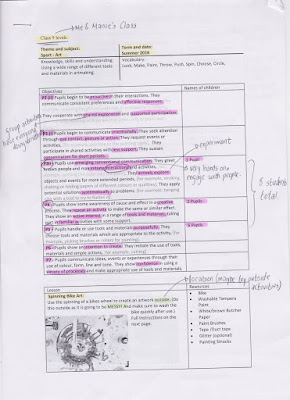 → Me & Marie's Class
Class 9 levels:
Theme and subject:
Sport - Art
Term and date:
Summer 2016
Knowledge, skills and understanding:
Using a wide range of different tools
and materials in artmaking.
Vocabulary:
Look, Make, Paint, Throw, Push, Spin, Choose, Circle,
Objectives
No of children
Pupils begin to be proactive in their interactions. They
communicate consistent preferences and affective responses.
They cooperate with shared exploration and supported participation.
Pupils begin to communicate intentionally. They seek attention
through eye contact, gesture or action. They request events or
activities.
participate in shared activities with less support. They sustain
concentration for short periods.
Pupils use emerging conventional communication. They greet
known people and may initiate interactions and activities
They actively explore
objects and events for more extended periods.
They apply
potential solutions systematically to problems.
1 Pupil
→ experiment
very hands on
engage with people
5 students
total
Pupils show some awareness of cause and effect in a creative
process. They repeat an activity to make the same or similar effect.
They show an active interest in a range of tools and materials, taking
part in familiar activities with some support.
2 Pupils
P5 - Pupils handle or use tools and materials purposefully. They
choose tools and materials which are appropriate to the activity
P6 - Pupils show an intention to create. They imitate the use of tools,
materials and simple actions,
P7 - Pupils communicate ideas, events or experiences through their
use of colour, form, line and tone. They show confidence in using a
variety of processes and make appropriate use of tools and materials.
→ location (maybe try outside
activities)
Lesson
Resources
Spinning Bike Art:
Use the spinning of a bike wheel to create an artwork outside. (Do
this outside as it is going to be MESSY! And make sure to wash the
bike quickly after use.)
Full instructions on the
next page.
• Bike
• Washable Tempera
Paint
• White/Brown Butcher
Paper
• Paint Brushes
• Tape /Duct tape
• Glitter (optional)
• Painting Smocks